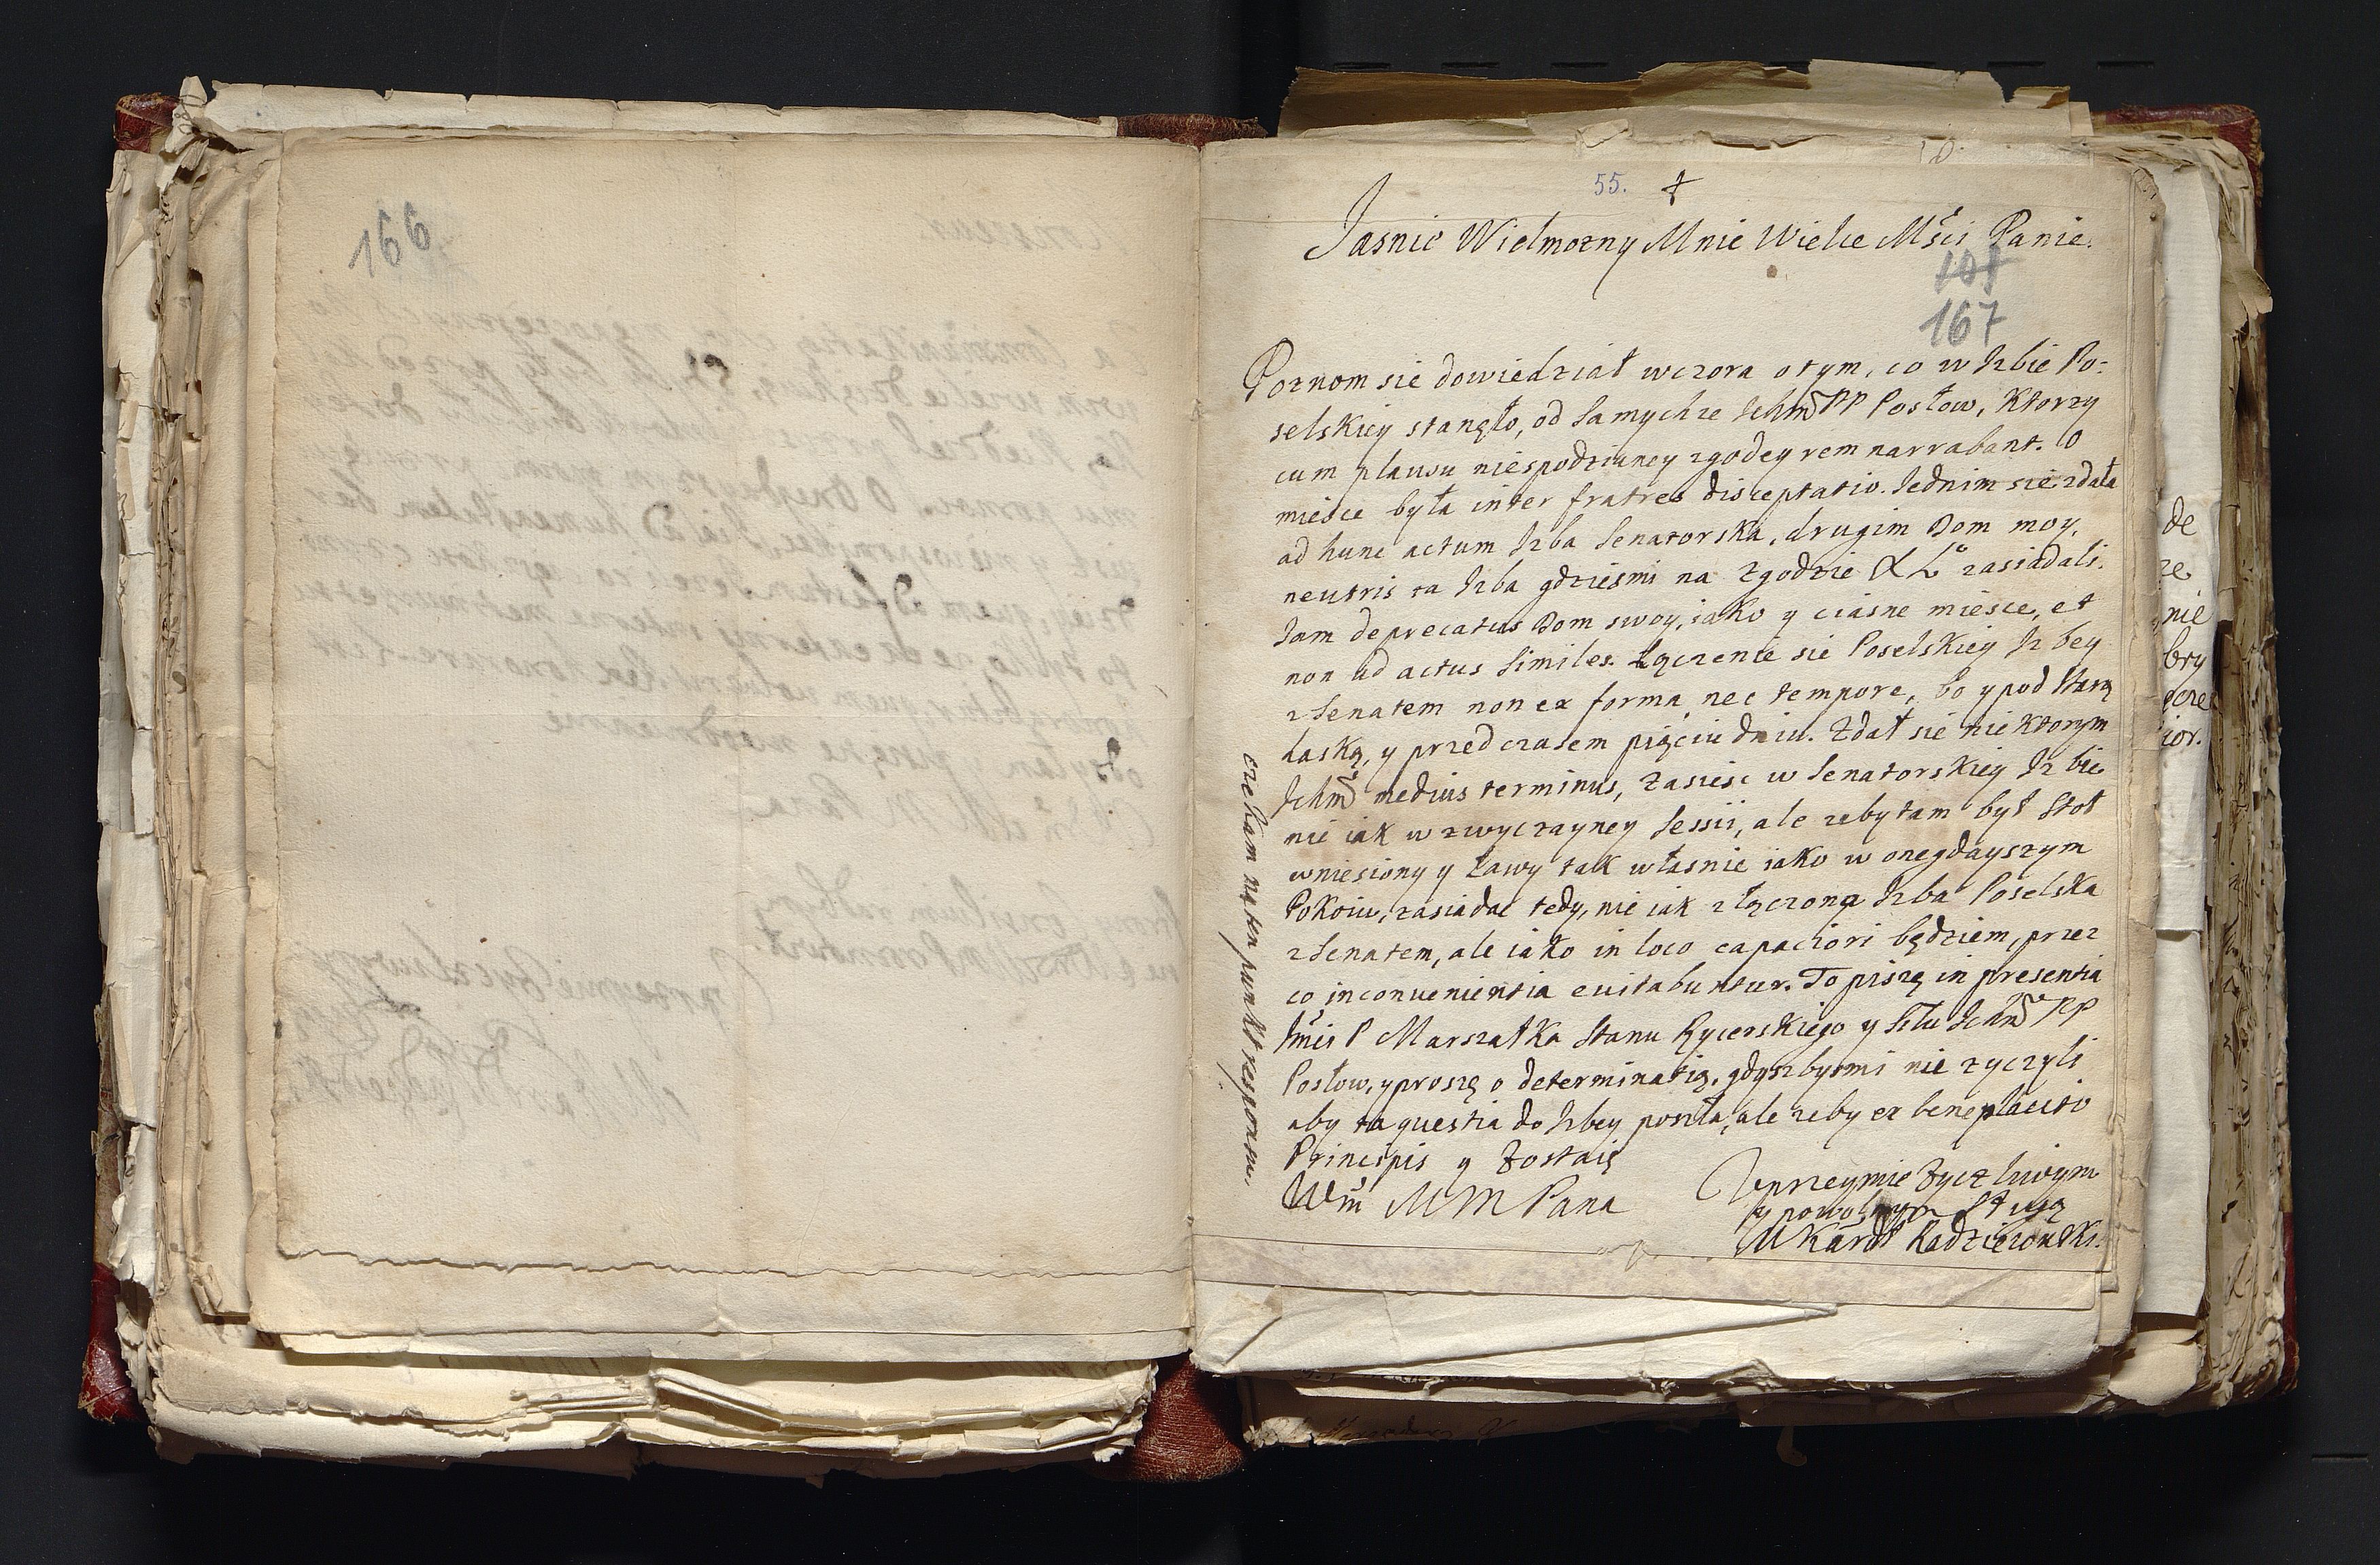 166
55. ✝
Jasnie Wielmozny Mnie Wielce Mści Panie.
101
167
Poznom sie dowiedział wczora o tym, co w Izbie Po-
selskiey stanęło, od samychze Ichm̃ PP Posłow, Ktorzy
cum plausu niespodziuney zgodey rem narrabant. O
miesce była inter fratres disceptatio. Jednim sie zdała
ad hunc actum Izba Senatorska, drugim Dom moy,
neutris ta Izba gdziesmi na zgodzie zasiadali.
Iam deprecatus Dom swoy, iako y ciasne miesce, et
non ad actus similes. Łączenie sie Poselskiey Izbey
z Senatem non ex forma nec tempore, bo y pod Starą
Laską, y przed czasem pięciu dniu. Zdał sie niektorym
Ichm̃ medius terminus, zasiesc w Senatorskiey Izbie
nie iak w zwyczayney Sessii, ale zeby tam był Stoł
wniesiony y Ławy tak własnie iako w onegdayszym
Pokoiu, zasiadac tedy, nie iak złączona Izba Poselska
z Senatem, ale iako in loco capaciori będziem, przez
co inconuenientia euitabuntur. To piszę in presentia
Imci P Marszałka Stanu Rycerskiego y Siłu Ichm̃ PP
Posłow, y proszę o determinatią, gdyszbysmi nie zyczyli
aby ta questia do Izbey poszła, ale zeby ex beneplacito
Principis y Zostaię
Wm̃ M M Pana
Uprzeymie Zyczliwym
y powolnym Sługą
M Kardł Radzieiowski.
czekam na ten punkt responsu.
de
ze
nie
bry
ior.